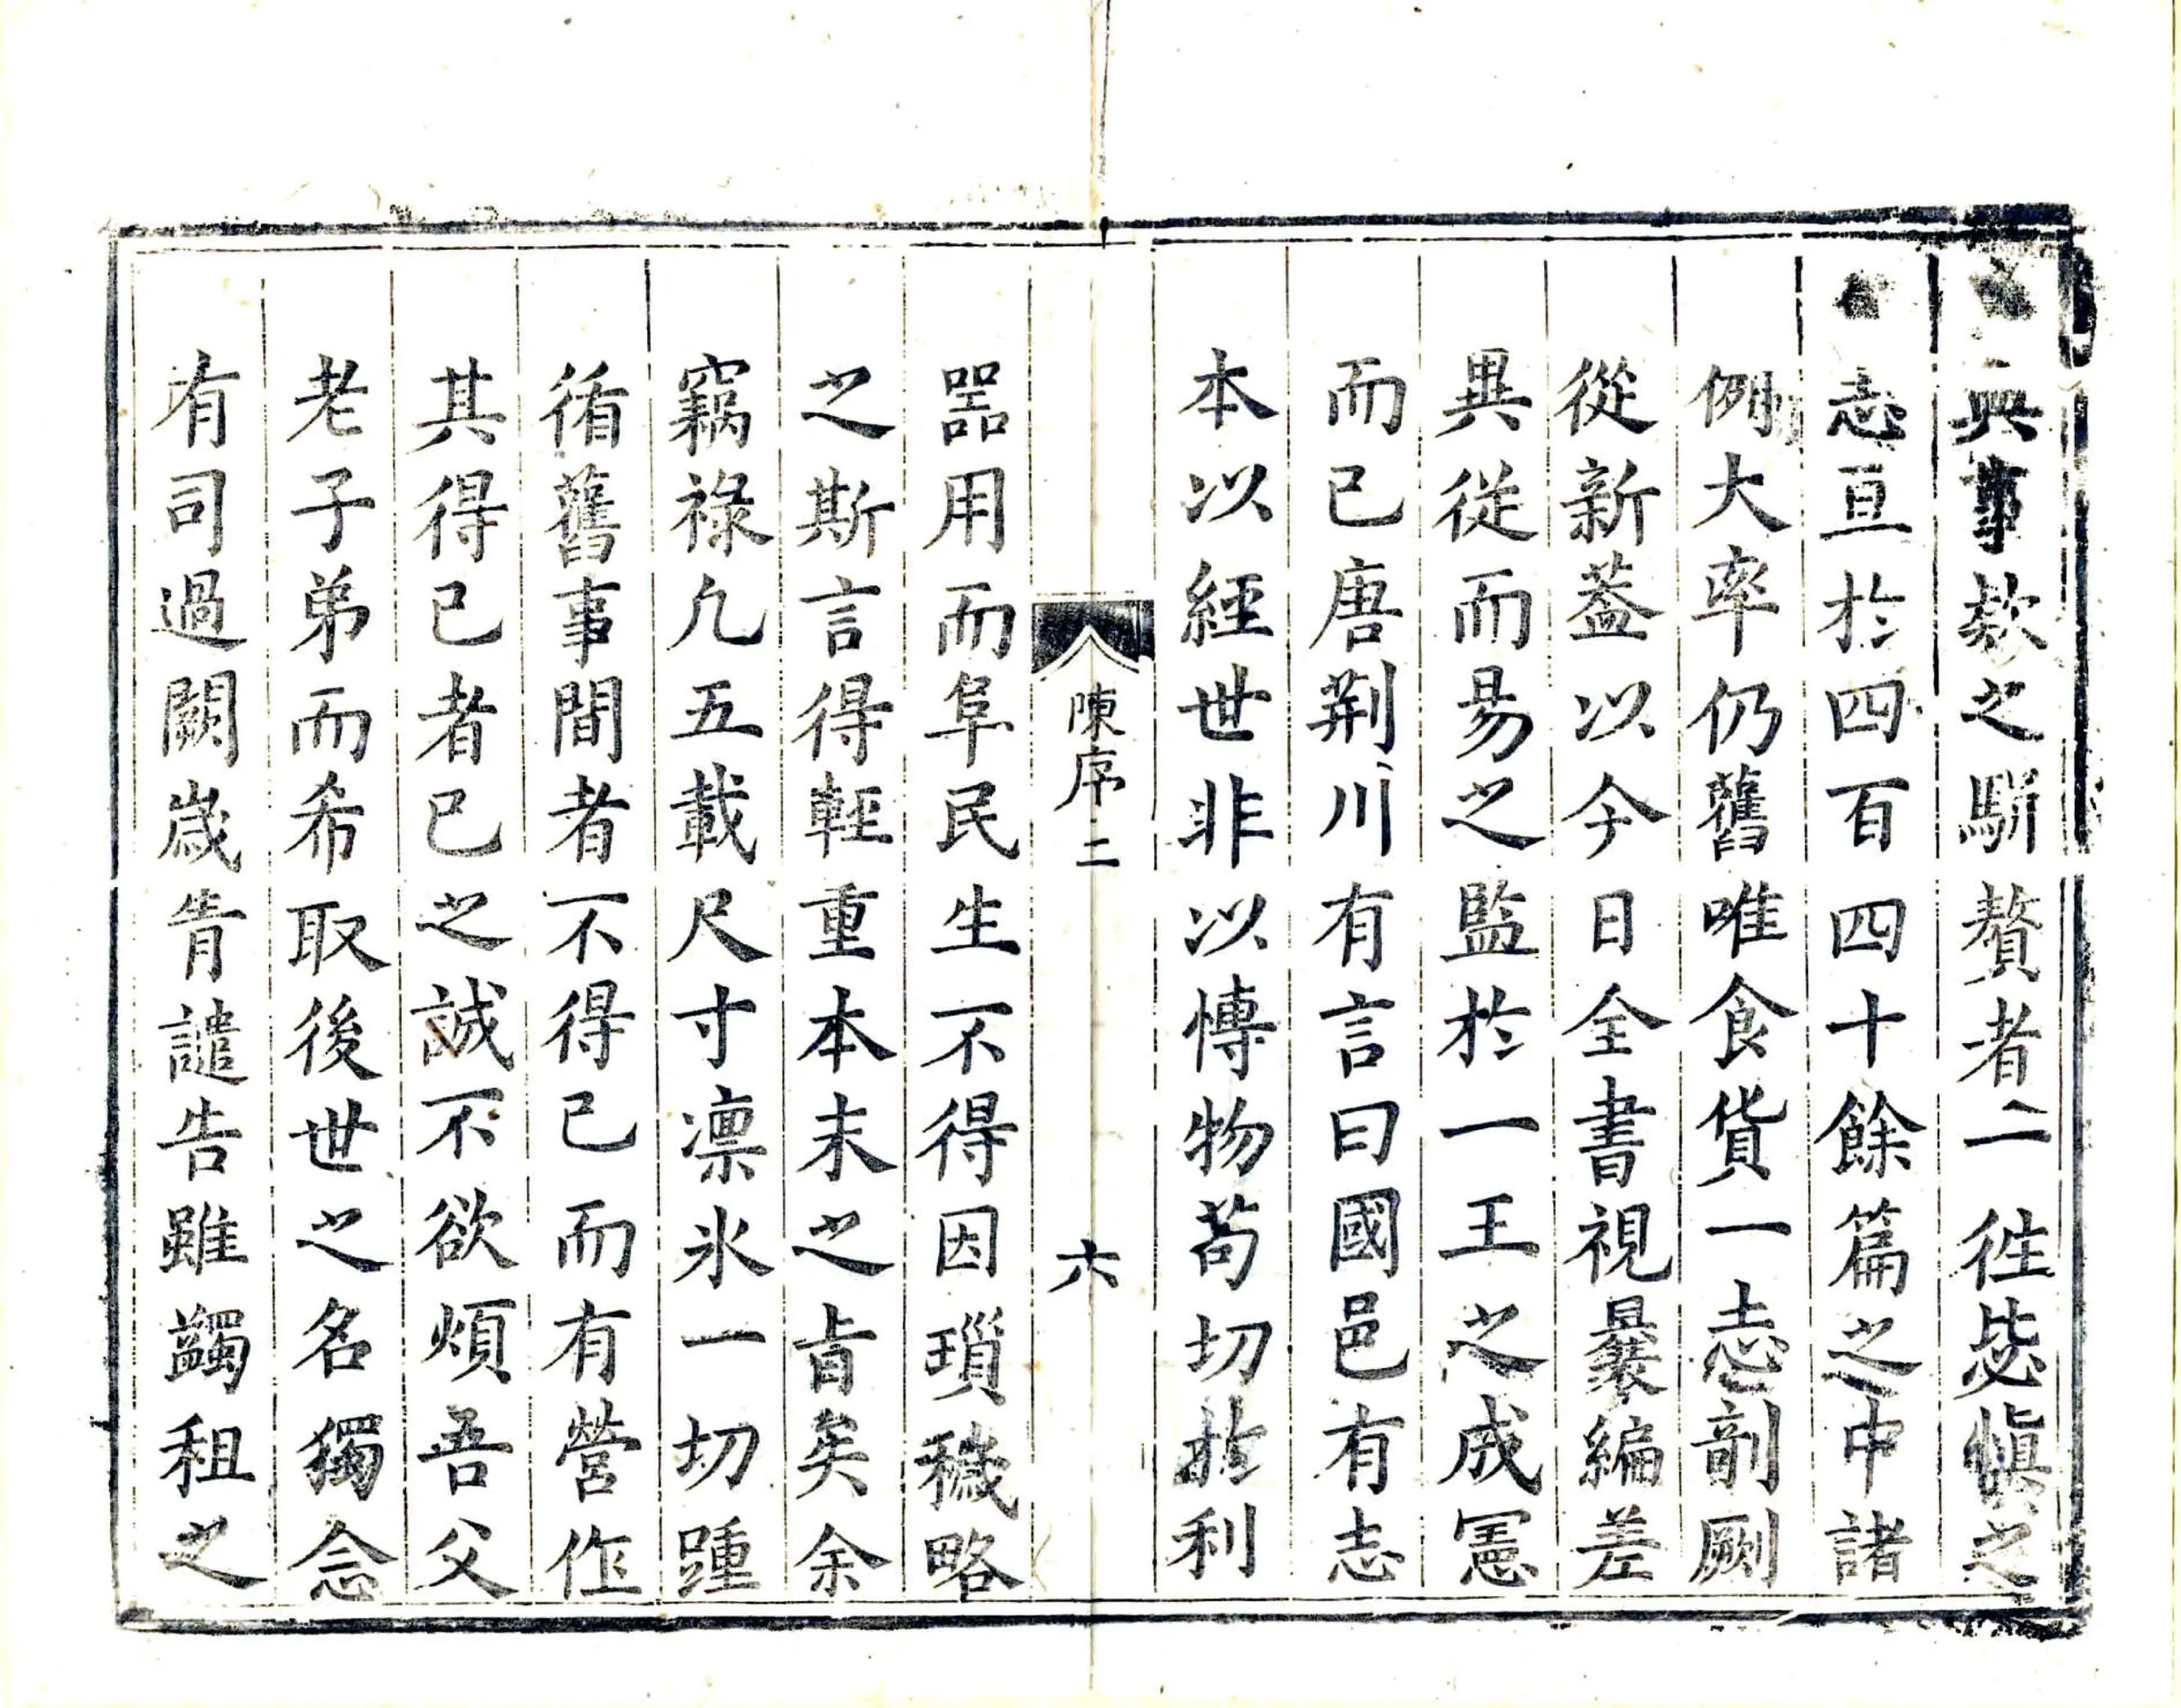 興事欸之駢贅者二徃毖慎之
志直於四百四十餘篇之中諸
例大率仍舊唯食貨一志剖劂
從新葢以今日全書視曩編差
異從而昜之監於一王之成憲
而已唐荆川有言曰國邑有志
本以經世非以愽物苟切於利
陳序二
六
器用而阜民生不得因瑣穢略
之斯言得輕重本末之㫖矣余
竊祿凢五載尺寸凛氷一切踵
循舊事間者不得已而有營作
其得已者已之誠不欲煩吾父
老子弟而希取後世之名獨念
有司過闕嵗眚譴告雖蠲租之